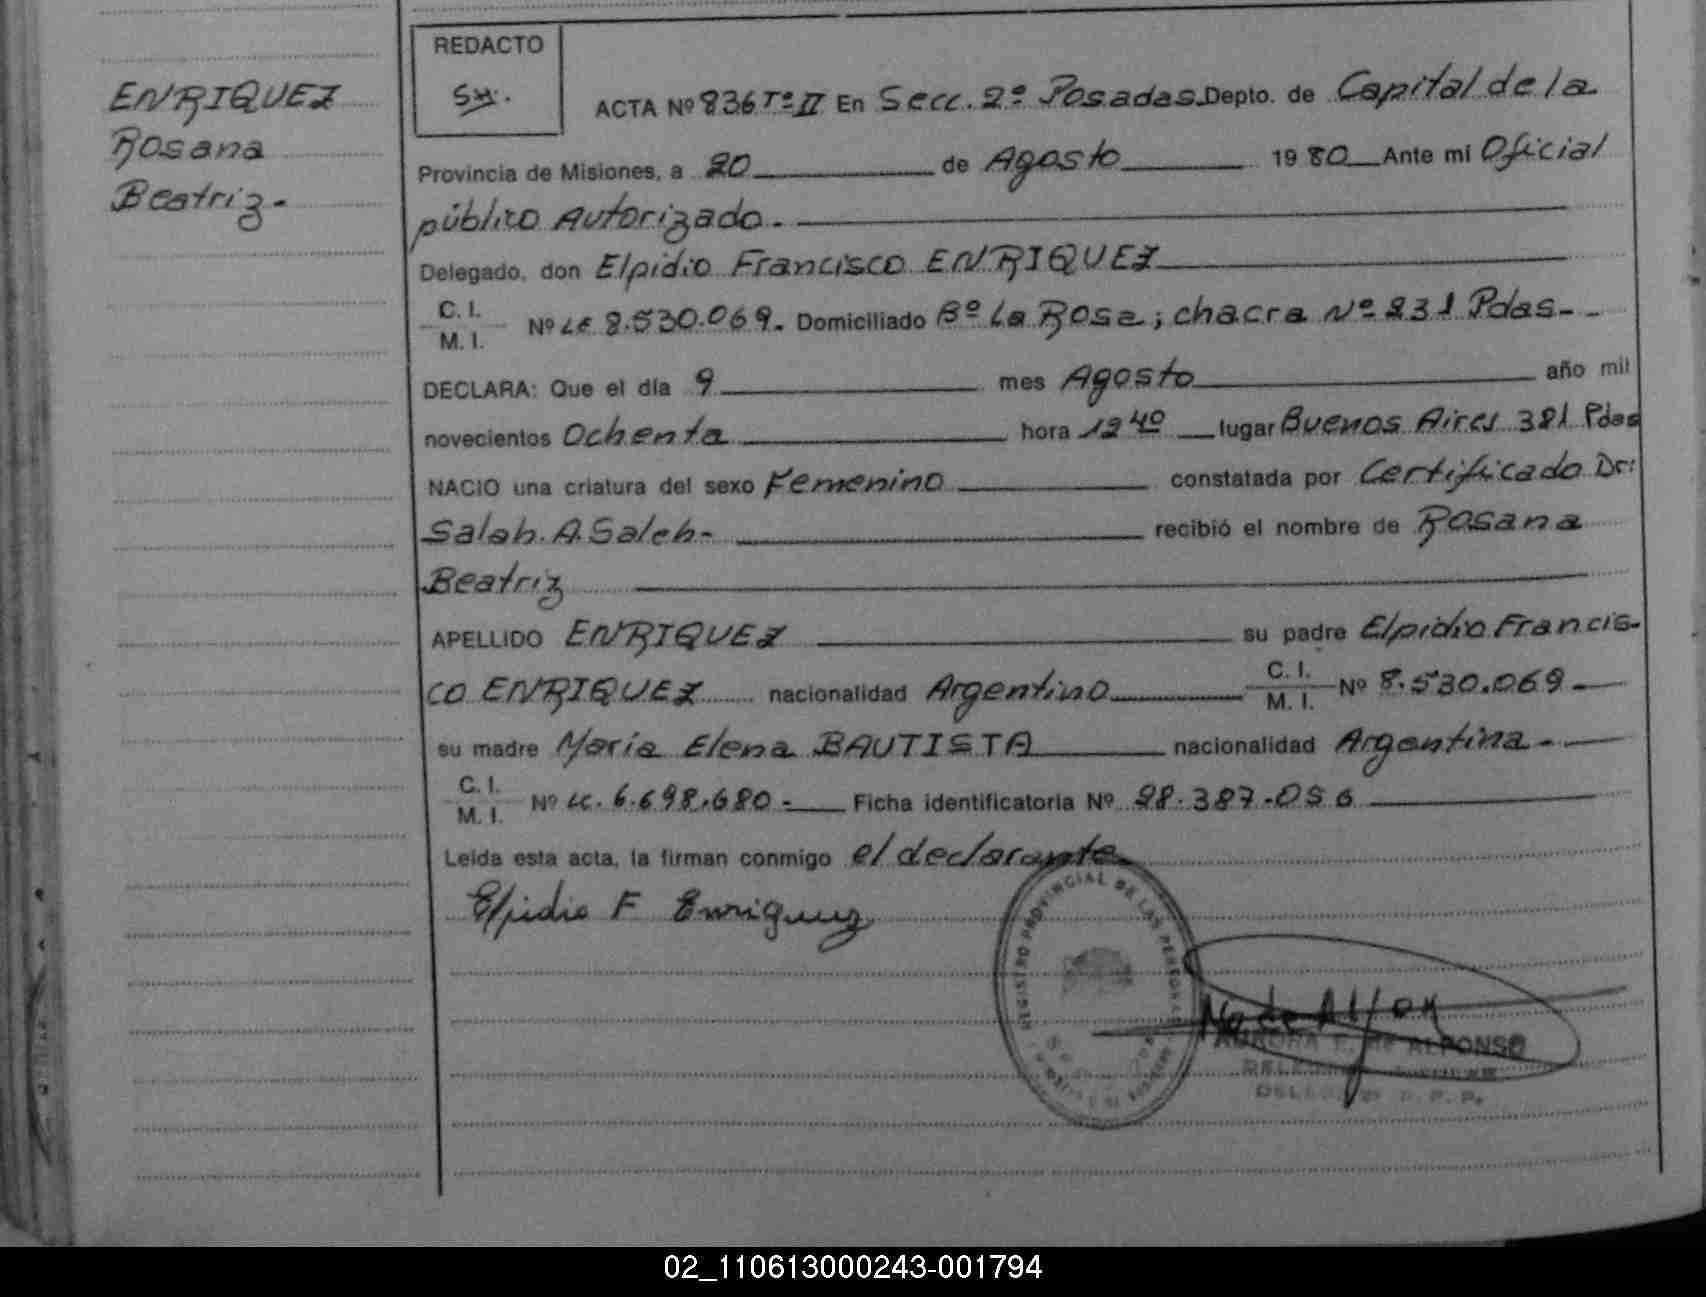 ENRIQUEZ
Rosana
Beatriz.-
REDACTO
ACTA Nº 836 Tº II En Secc. 2º Posadas Depto. de Capital de la
Provincia de Misiones, a 20 de Agosto 1980 Ante mi Oficial
público Autorizado.-
Delegado, don Elpidio Francisco ENRIQUEZ
C. I.
M. I. Nº LE 8.530.069.- Domiciliado Bº La Rosa; chacra Nº 231 Pdas.-
DECLARA: Que el día 9 mes Agosto año mil
novecientos Ochenta hora 12 40 lugar Buenos Aires 381 Pdas
NACIO una criatura del sexo Femenino constatada por Certificado Dr:
Saleh. A. Saleh.- recibió el nombre de Rosana
Beatriz
APELLIDO ENRIQUEZ su padre Elpidio Francis-
co ENRIQUEZ nacionalidad Argentino C. I.
M. I. Nº 8.530.069.-
su madre María Elena BAUTISTA nacionalidad Argentina.-
C. I.
M. I. Nº LC. 6.698.680.- Ficha identificatoria Nº 28.387.056
Leída esta acta, la firman conmigo el declarante
Elpidio F Enriquez
REGISTRO PROVINCIAL DE LAS PERSONAS
DE ALFONSO
02_110613000243-001794